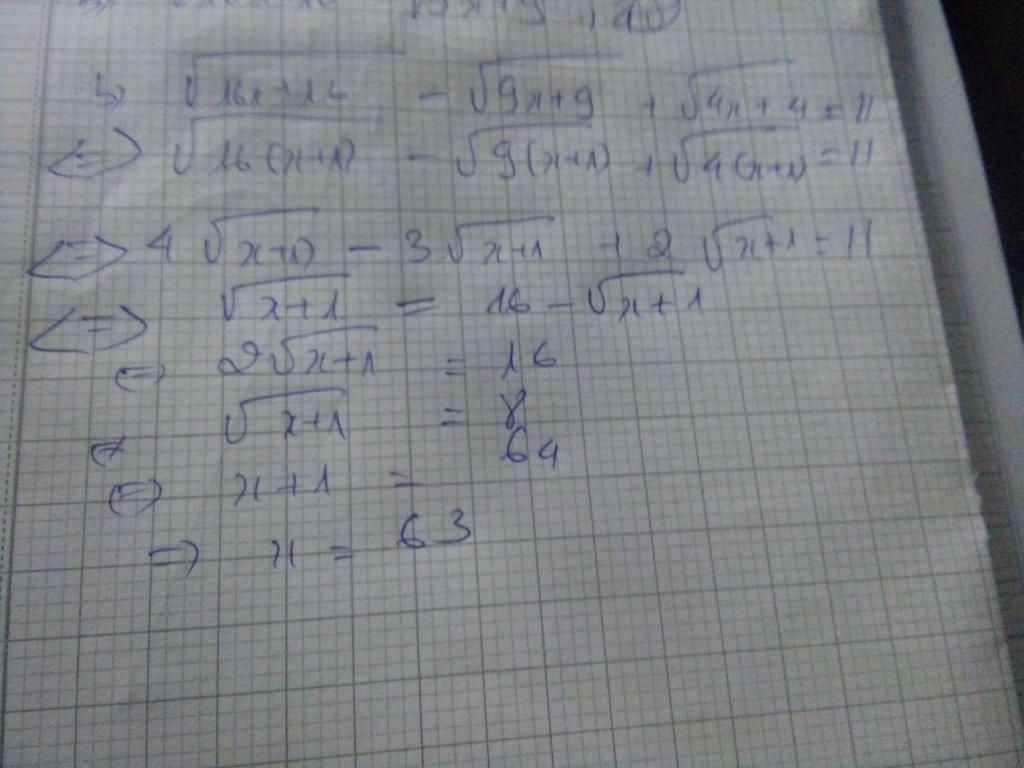 √16x+16 - √9x+9 + √4x+4 = 11
<=> √16(x+1) - √9(x+1) + √4(x+1) = 11
<=> 4√x+1 - 3√x+1 + 2√x+1 = 11
<=> √x+1 = 16 - √x+1
<=> 2√x+1 = 16
√x+1 = 8
<=> x+1 = 64
=> x = 63